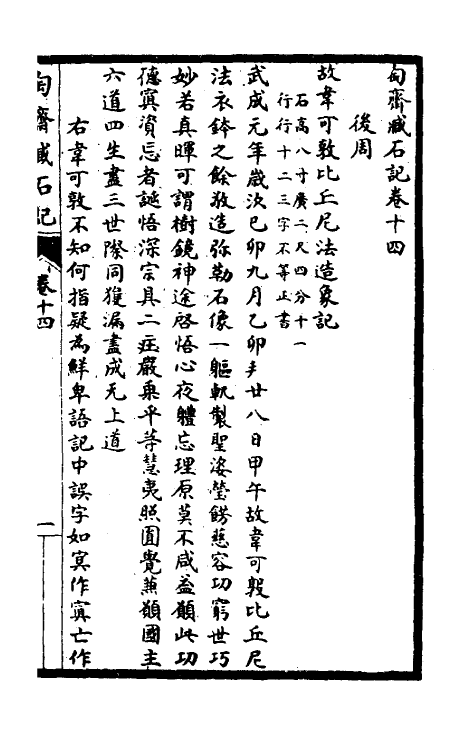 匋齋臧石記卷十四
後周
故韋可敦比丘尼法造象記
石高八寸廣二尺四分十一
行行十二三字不等正書
武成元年歲次己卯九月乙卯廿八日甲午故韋可敦比丘尼
法衣鉢之餘敬造弥勒石像一軀軌製聖姿瑩餝慈容功窮世巧
妙若真暉可謂樹鏡神途啓悟心夜體忘理原莫不咸益願此功
德寘資忘者誕悟深宗具二莊嚴乘平等慧夷照圓覺兼願國主
六道四生盡三世際同獲漏盡成无上道
右韋可敦不知何指疑為鮮卑語記中誤字如冥作寘亡作
匋齋臧石記
卷十四
一